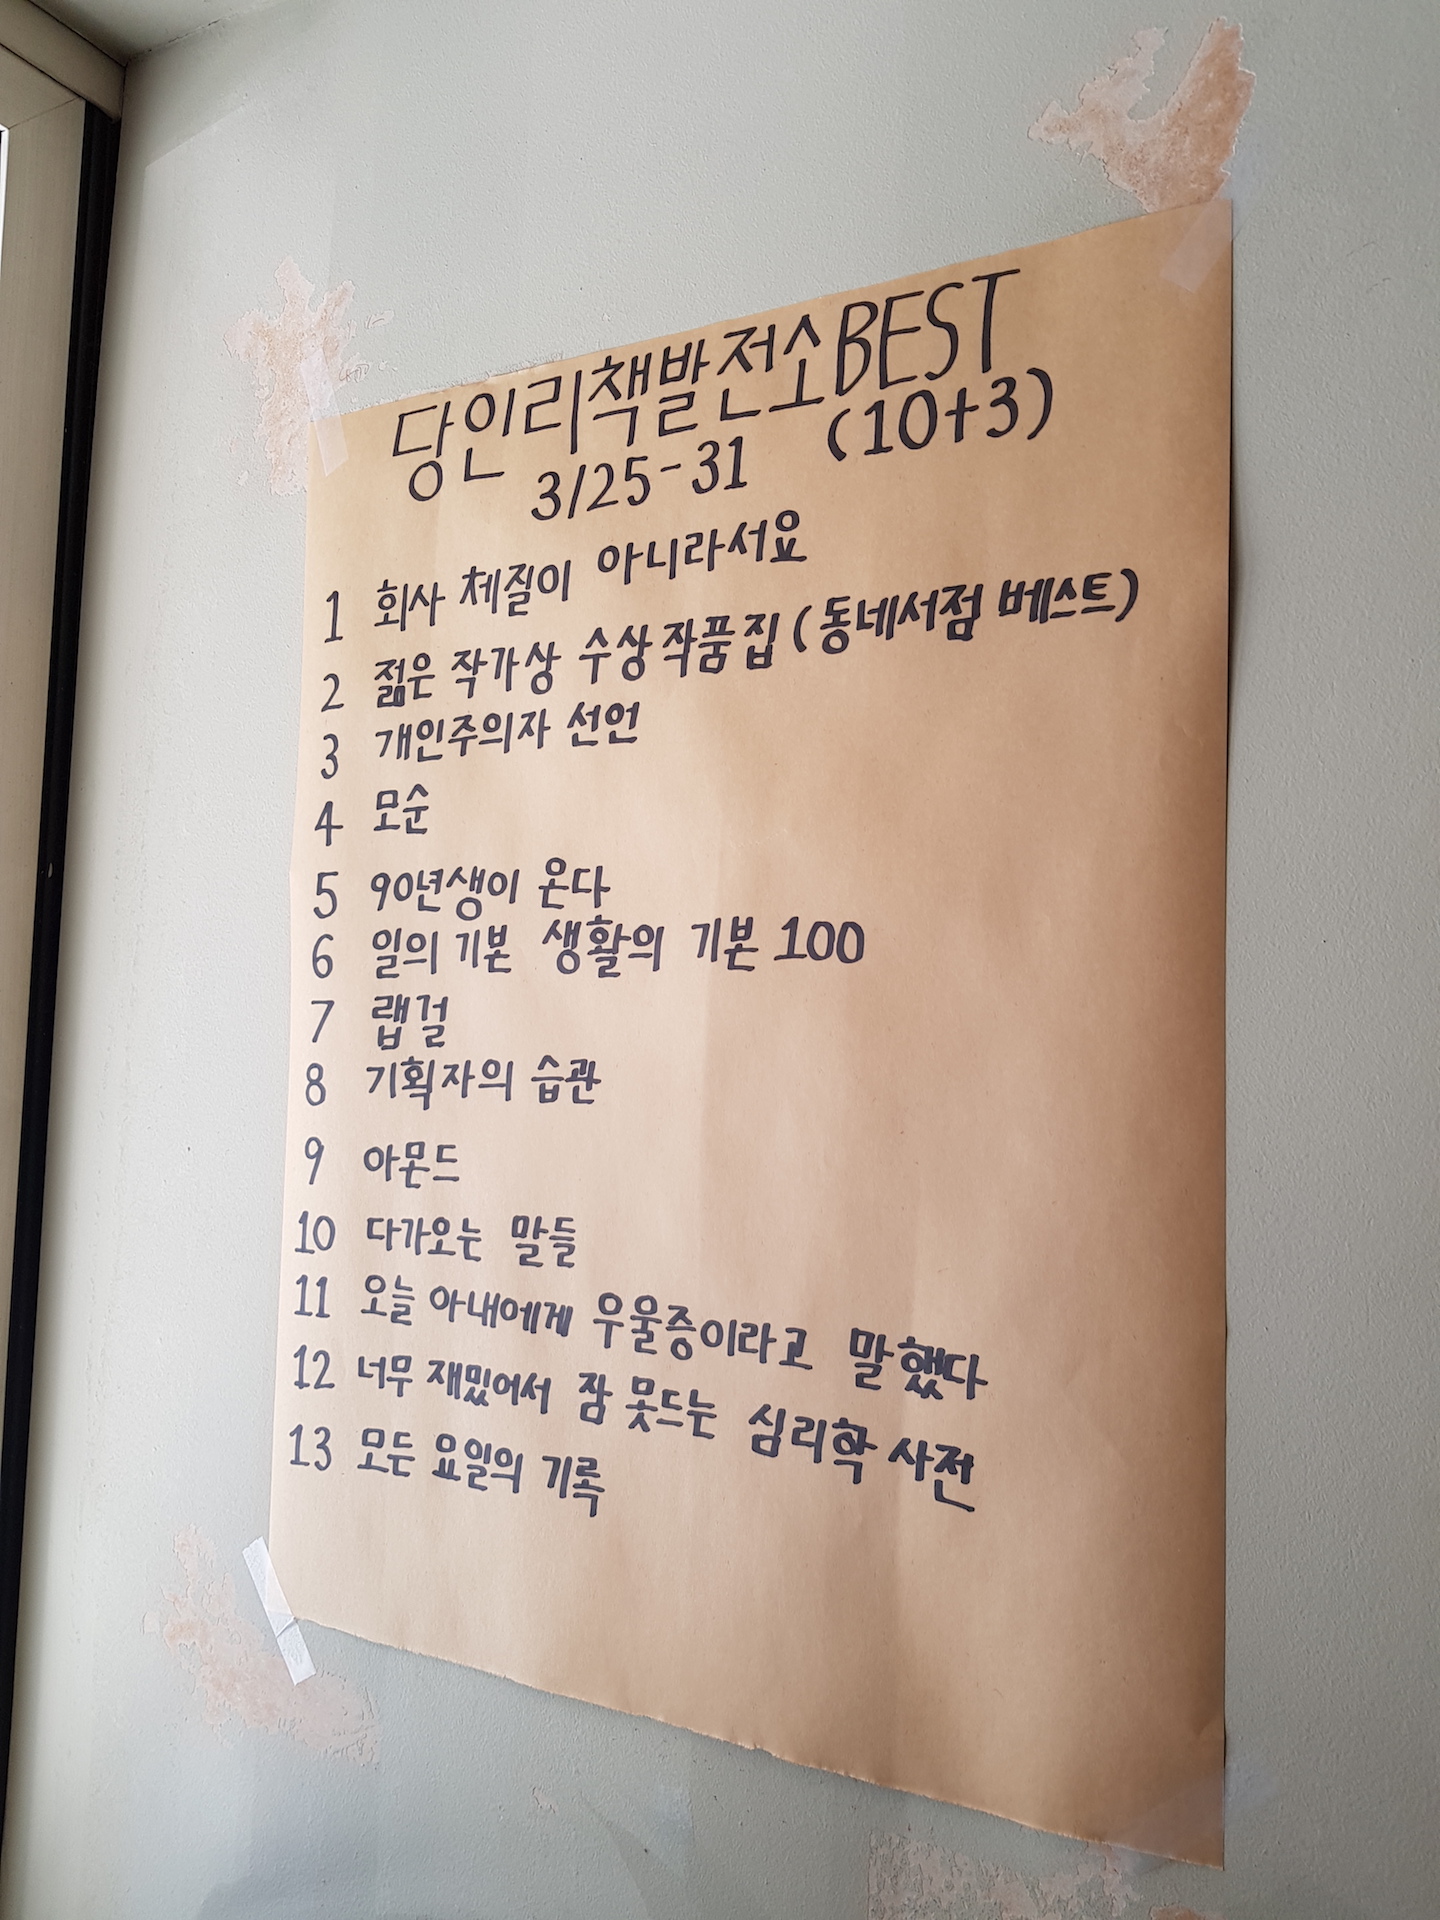 당인리책발전소BEST
3/25-31 (10+3)
1 회사 체질이 아니라서요
2 젊은 작가상 수상작품집 (동네서점 베스트)
3 개인주의자 선언
4 모순
5 90년생이 온다
6 일의 기본 생활의 기본 100
7 랩걸
8 기획자의 습관
9 아몬드
10 다가오는 말들
11 오늘 아내에게 우울증이라고 말했다
12 너무 재밌어서 잠 못드는 심리학 사전
13 모든 요일의 기록